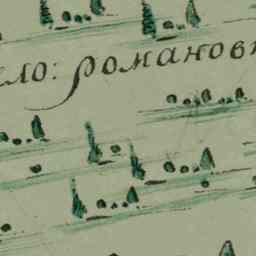 ло: романов